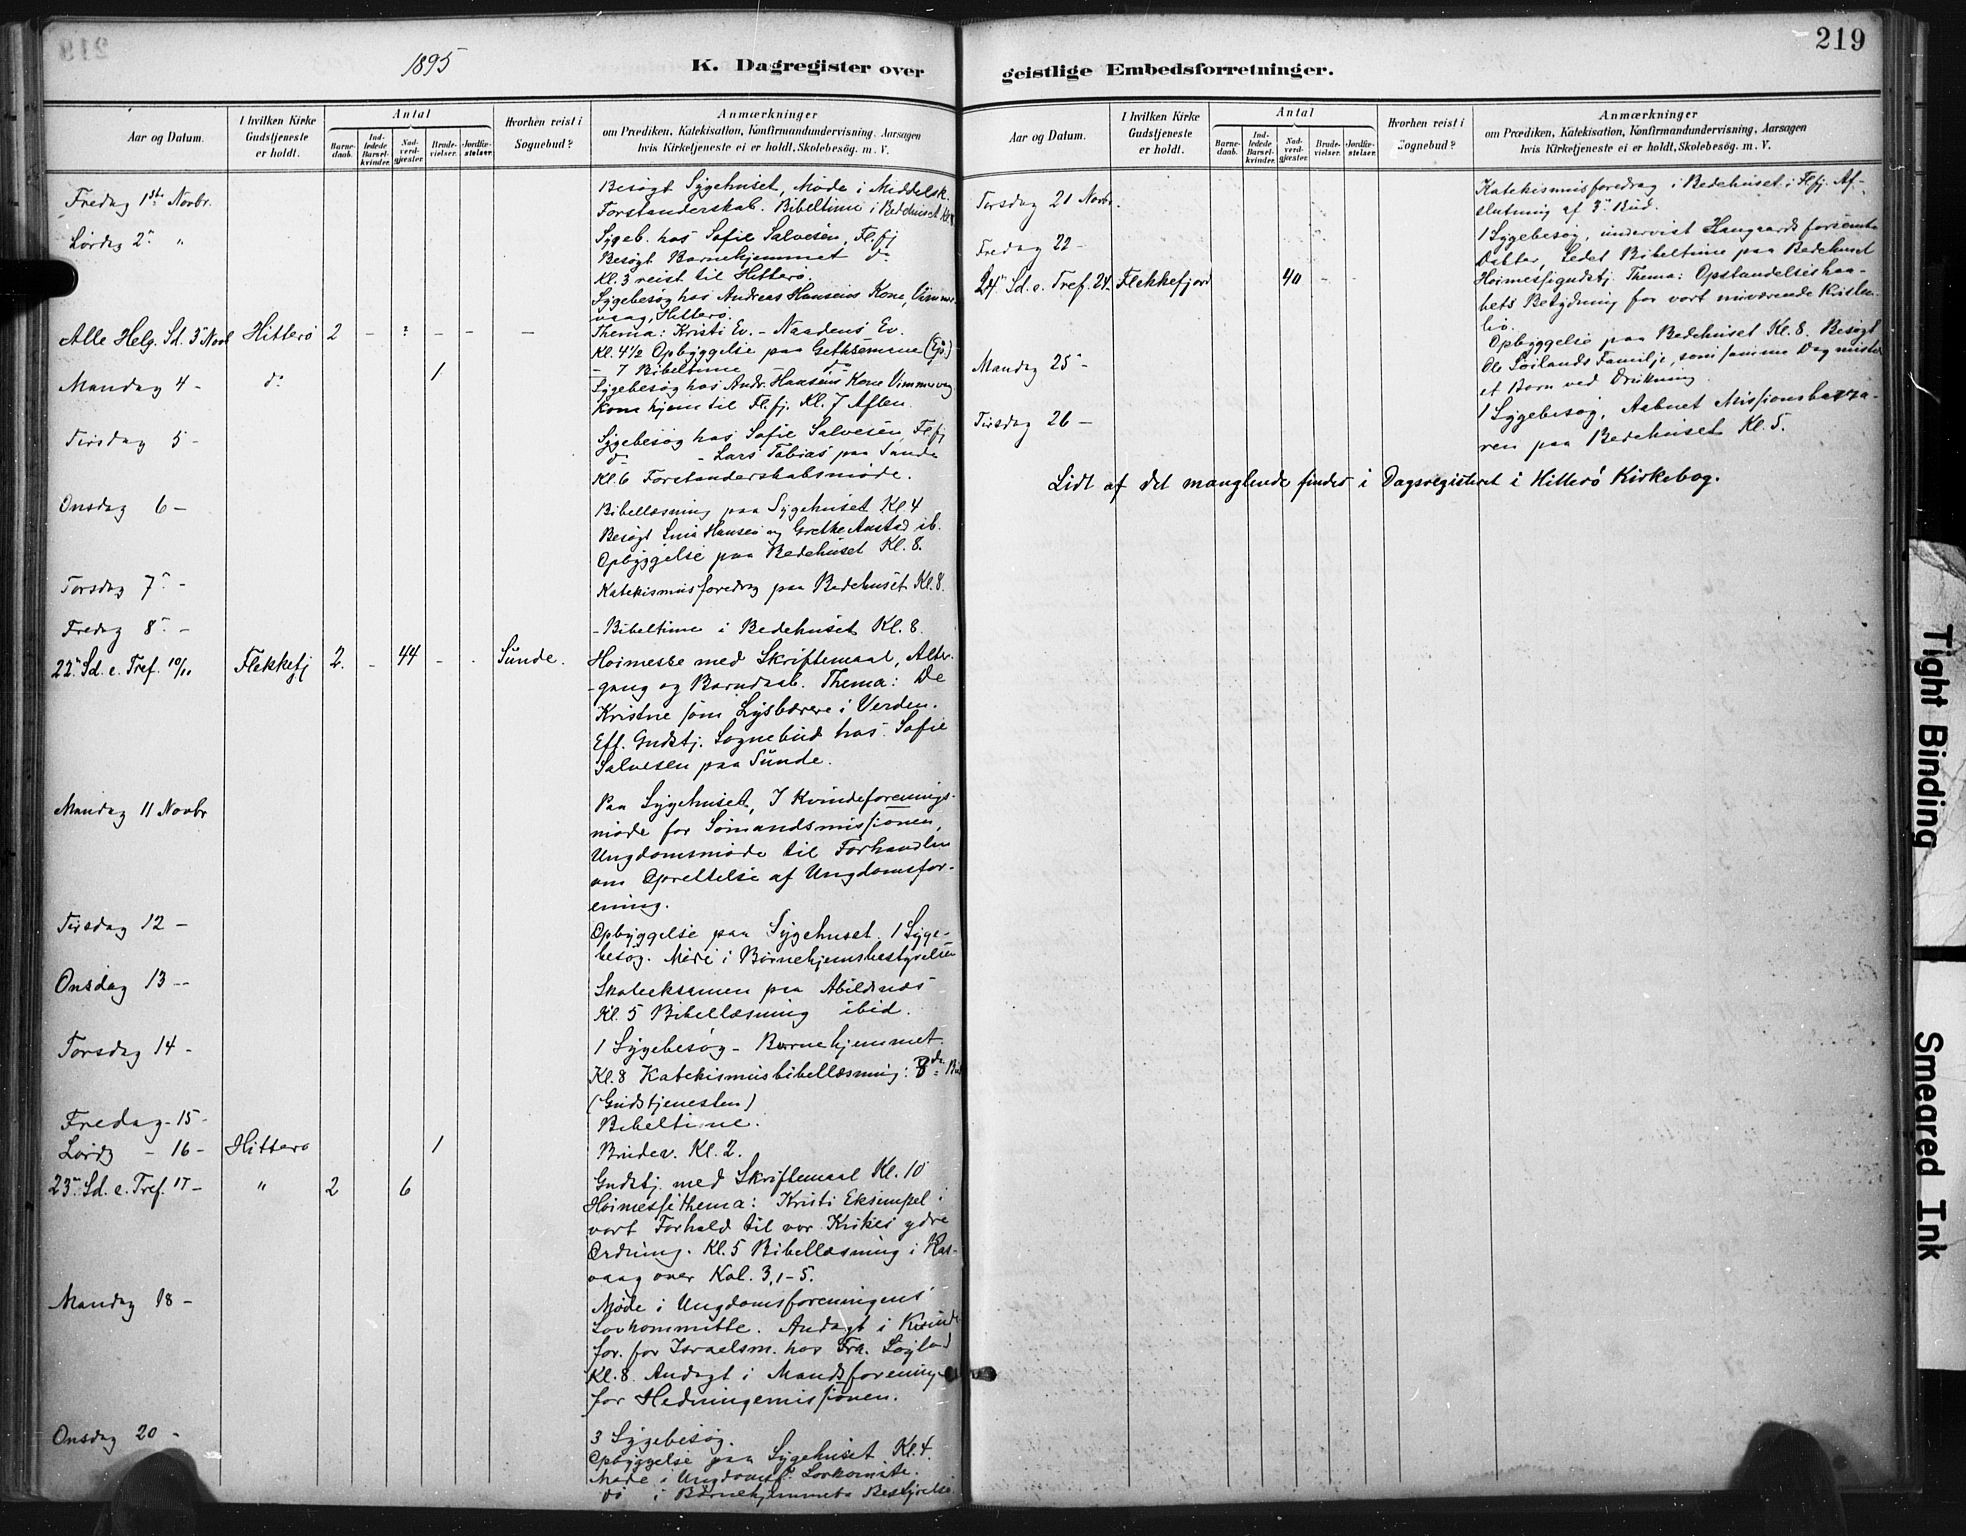 1895
K. Dagregister over
Aar og Datum.
I hvilken Kirke Gudstjeneste er holdt.
Antal
Barnedaab.
Indledede Barselkvinder.
Nadverdgjester.
Brudevielser.
Jordfæstelser.
Hvorhen reist i Sognebud?
Anmærkninger
om Prædiken, Katekisation, Konfirmandundervisning, Aarsagen
hvis Kirketjeneste ei er holdt, Skolebesög. m. V.
Fredag 1ste Novbr. Besøgt Sygehuset, Møde i Middelsk.
Forstanderskab. Bibeltime i Bedehuset
Lørdag 2 " Sygeb. hos Sofie Salvesen, Flfj
Besøgt Barnehjemmet do
Kl. 3 reist til Hitterø.
Sygebesøg hos Andreas Hansens Kone,
vaag, Hitterø.
Alle Helg. Sd. 3 Novb Hitterø 2 - ? - - - Thema: Kristi Ev. - Naadens Ev.
Kl. 4 1/2 Opbyggelse paa Gethsemane
- 7 Bibeltime do
Mandag 4 - do 1 Sygebesøg hos Andr. Hansens Kone
Kom hjem til Flfj. Kl. 7 Aften.
Tirsdag 5 - Sygebesøg hos Sofie Salvesen, Flfj
do - Lars Tobias paa Sunde
Kl. 6 Forstanderskabsmøde.
Onsdag 6 - Bibellæsning paa Sygehuset Kl 4
Besøgt Hansen og Grethe ib.
Opbyggelse paa Bedehuset Kl. 8.
Torsdag 7 - Katekismusforedrag paa Bedehuset Kl. 8.
Fredag 8 - - Bibeltime i Bedehuset Kl. 8.
22 Sd. e. Tref. 10/11 Flekkefj 2. - 44 - . Sunde. Høimesse med Skriftemaal, Alter-
gang og Barndaab. Thema: De
Kristne som Lysbærere i Verden.
Eft. Gudstj. Sognebud hos Sofie
Salvesen paa Sunde.
Mandag 11 Novbr Paa Sygehuset, I Kvindeforenings-
møde for Sømandsmissionen,
Ungdomsmøde til Forhandling
om Oprettelse af Ungdomsfor-
ening.
Tirsdag 12 - Opbyggelse paa Sygehuset. 1 Syge-
besøg. Møde i Børnehjemsbestyrelsen
Onsdag 13 - Skoleeksamen paa Abildnæs
Kl. 5 Bibellæsning ibid.
Torsdag 14 - 1 Sygebesøg - Barnehjemmet
Kl. 8 Katekismusbibellæsning: 3de Bud
(Gudstjenesten)
Fredag - 15 - Bibeltime.
Lørdg - 16 - Hitterø 1 Brudev. Kl. 2.
23 Sd. e. Tref. 17 - " 2 6 Gudstj. med Skriftemaal Kl. 10
Høimesse Thema: Kristi Eksempel i
vort Forhold til vor Kirkes ydre
Ordning. Kl. 5 Bibellæsning i Ras-
vaag over Kol. 3, 1-5.
Mandag 18 - Møde i Ungdomsforeningens
Lovkommitte. Andagt i Kvinde
for. for Israelsm. hos Fra.
Kl. 8. Andagt i Mandsforening
for Hedningemissionen.
Onsdag 20 - 3 Sygebesøg.
Opbyggelse paa Sygehuset Kl. 4.
Møde i Ungdomsf. Lovkomite.
do i Børnehjemmets Bestyrelse
219
geistlige Embedsforretninger.
Aar og Datum.
I hvilken Kirke Gudstjeneste er holdt.
Antal
Barnedaab.
Indledede Barselkvinder.
Nadverdgjester.
Brudevielser.
Jordfæstelser.
Hvorhen reist i Sognebud?
Anmærkninger
om Prædiken, Katekisation, Konfirmandundervisning, Aarsagen
hvis Kirketjeneste ei er holdt, Skolebesög. m. V.
Torsdag 21 Novbr. Katekismusforedrag i Bedehuset i Flfj. Af-
slutning af 3 Bud.
Fredag 22 - 1 Sygebesøg, undervist Haugaards forsømte
Datter, Ledet Bibeltime paa Bedehuset
24 Sd. e. Tref. 24 - Flekkefjord 40 - - Høimessegudstj. Thema: Opstandelseshaa-
bets Betydning for vort nuværende Kristen-
liv.
Opbyggelse paa Bedehuset Kl. 8. Besøgt
Mandag 25 - Ole Søilands Familje, som samme Dag mistet
et Barn ved Drukning.
Tirsdag 26 - 1 Sygebesøg, Aabnet Missionsbaza-
ren paa Bedehuset Kl. 5.
Lidt af det manglende findes i Dagsregisteret i Hitterø Kirkebog.
Tight Binding
Smeared Ink